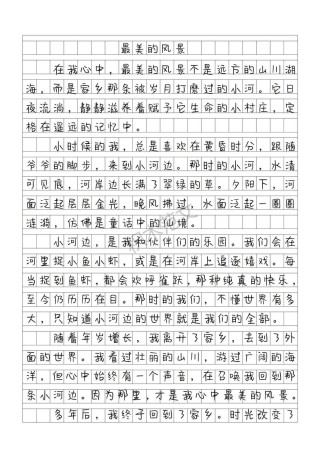 最美的风景
在我心中，最美的风景不是远方的山川湖
海，而是家乡那条被岁月打磨过的小河。它日
夜流淌，静静滋养着赋予它生命的小村庄，定
格在遥远的记忆中。
小时候的我，总是喜欢在黄昏时分，跟随
爷爷的脚步，来到小河边。那时的小河，水清
可见底，河岸边长满了翠绿的草。夕阳下，河
面泛起层层金光，晚风拂过，水面泛起一圈圈
涟漪，仿佛是童话中的仙境。
小河边，是我和伙伴们的乐园。我们会在
河里捉小鱼小虾，或是在河岸上追逐嬉戏。每
当捉到鱼虾，都会欢呼雀跃，那种纯真的快乐，
至今仍历历在目。那时的我们，不懂世界有多
大，只知道小河边的世界就是我们的全部。
随着年岁增长，我离开了家乡，去到了外
面的世界。我看过壮丽的山川，游过广阔的海
洋，但心中始终有一个声音，在召唤我回到那
条小河边。因为那里，才是我心中最美的风景。
多年后，我终于回到了家乡。时光改变了